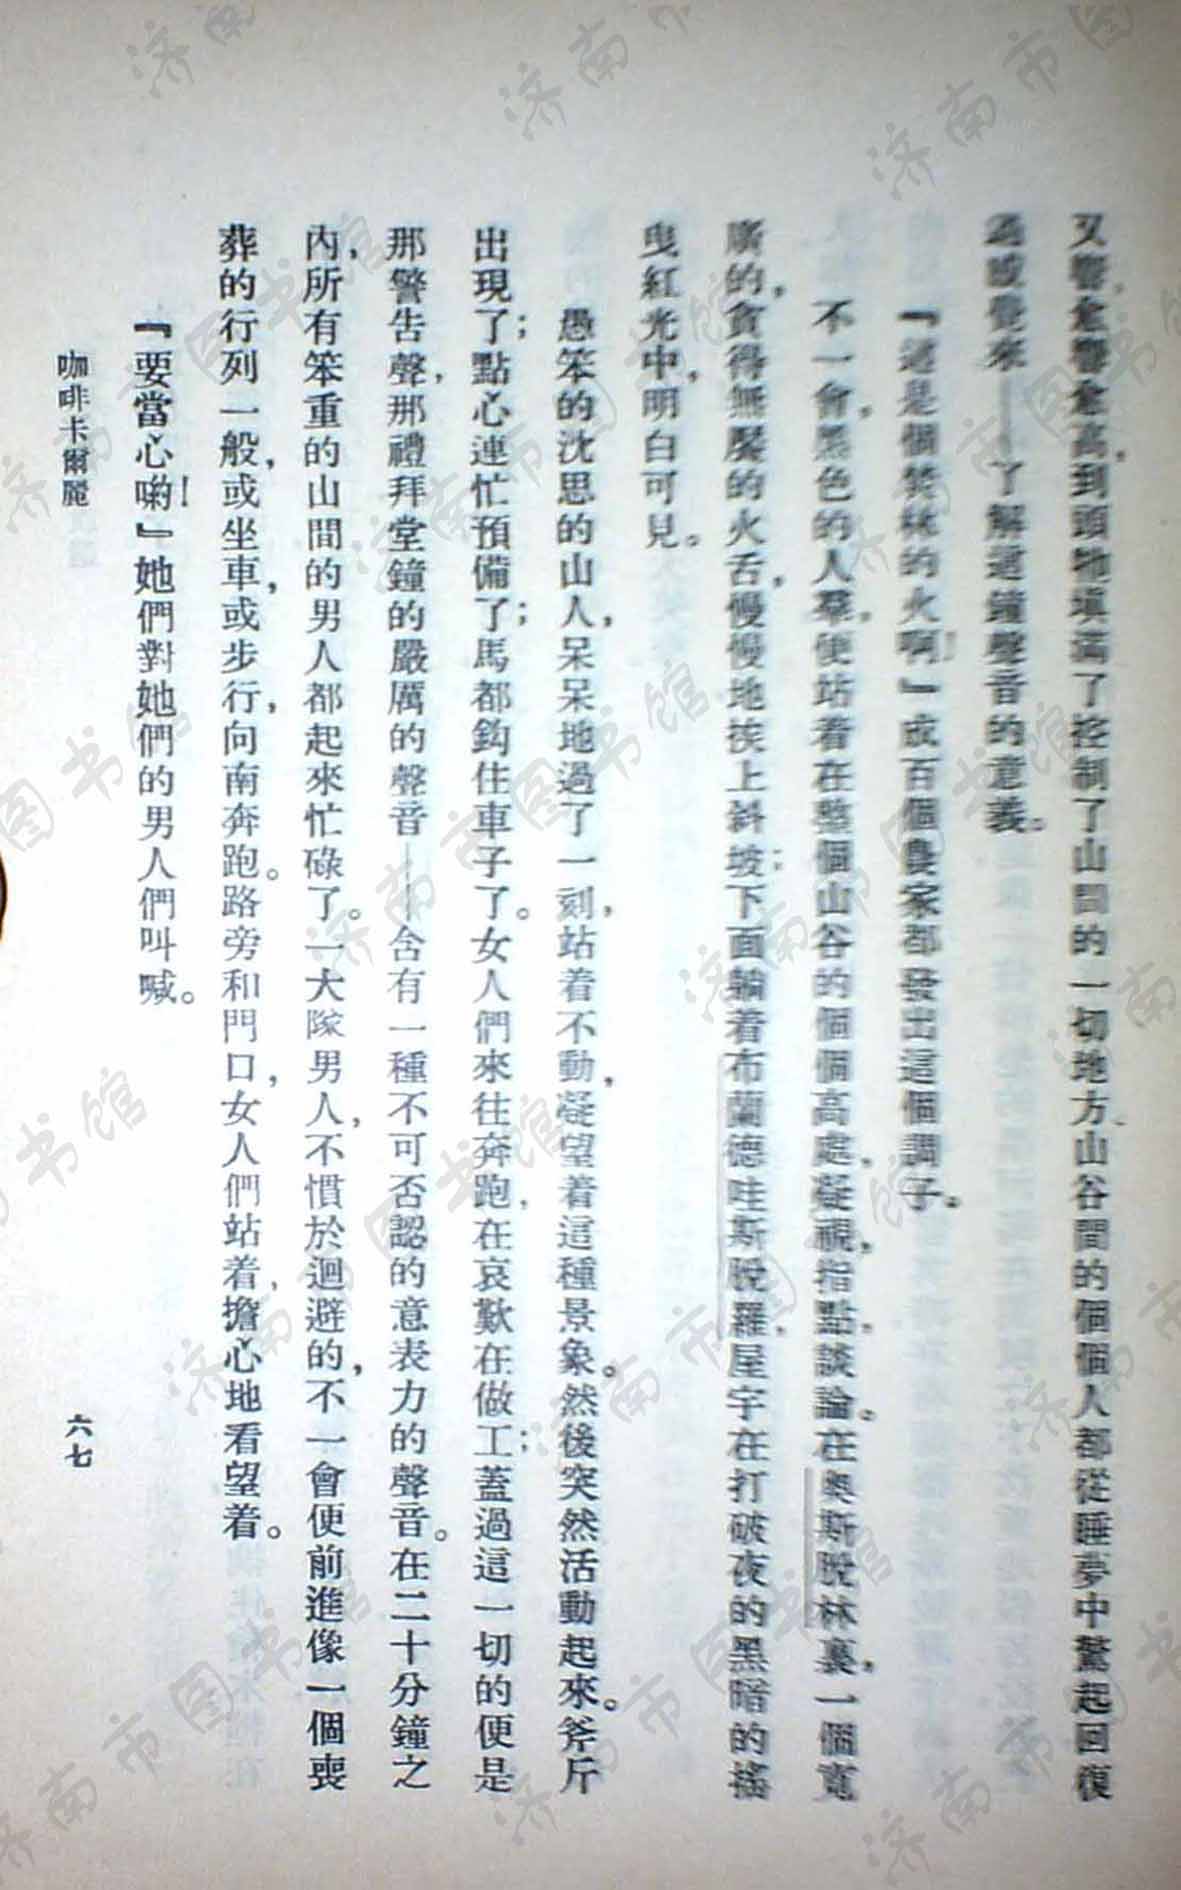 又響，愈響愈高，到頭牠填滿了控制了山間的一切地方。山谷間的個個人都從睡夢中驚起回復
爲感覺來——了解這鐘聲音的意義。
『這是個焚林的火啊！』成百個農家都發出這個調子。
不一會，黑色的人羣，便站着在整個山谷的個個高處，凝視，指點，談論。在奧斯脫林裏，一個寬
廣的，貪得無厭的火舌，慢慢地挨上斜坡；下面躺着布蘭德哇斯脫羅，屋宇在打破夜的黑暗的搖
曳紅光中，明白可見。
愚笨的沈思的山人，呆呆地過了一刻，站着不動，凝望着這種景象。然後突然活動起來。斧斤
出現了；點心連忙預備了；馬都鈎住車子了。女人們來往奔跑，在哀歎在做工；蓋過這一切的便是
那警告聲，那禮拜堂鐘的嚴厲的聲音——含有一種不可否認的意表力的聲音。在二十分鐘之
內，所有笨重的山間的男人都起來忙碌了。一大隊男人，不慣於迴避的，不一會便前進像一個喪
葬的行列一般，或坐車，或步行，向南奔跑。路旁和門口，女人們站着，擔心地看望着。
『要當心喲！』她們對她們的男人們叫喊。
咖啡卡爾麗
六七
济南市图书馆